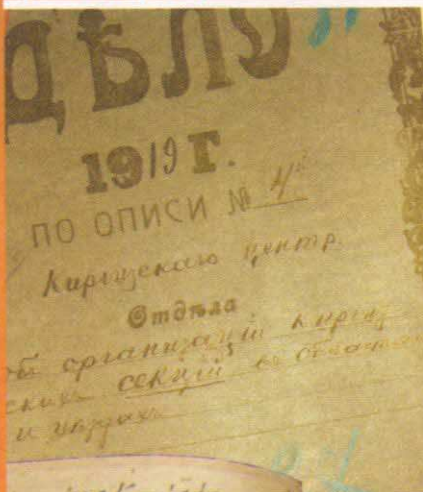 ДѢЛО
1919 Г.
ПО ОПИСИ № 4
Киргизскаго центр.
Отдѣла
объ организаціи киргиз
скихъ секцій въ
и уѣздахъ